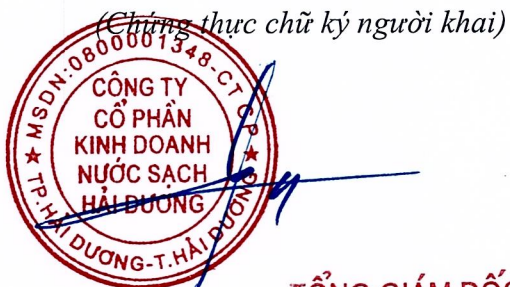 (Chứng thực chữ ký người khai)
MSDN:0800001348-CTCP
CÔNG TY
CỔ PHẦN
KINH DOANH
NƯỚC SẠCH
HẢI DƯƠNG
TP.HẢI DƯƠNG-T.HẢI DƯƠNG
TỔNG GIÁM ĐỐC